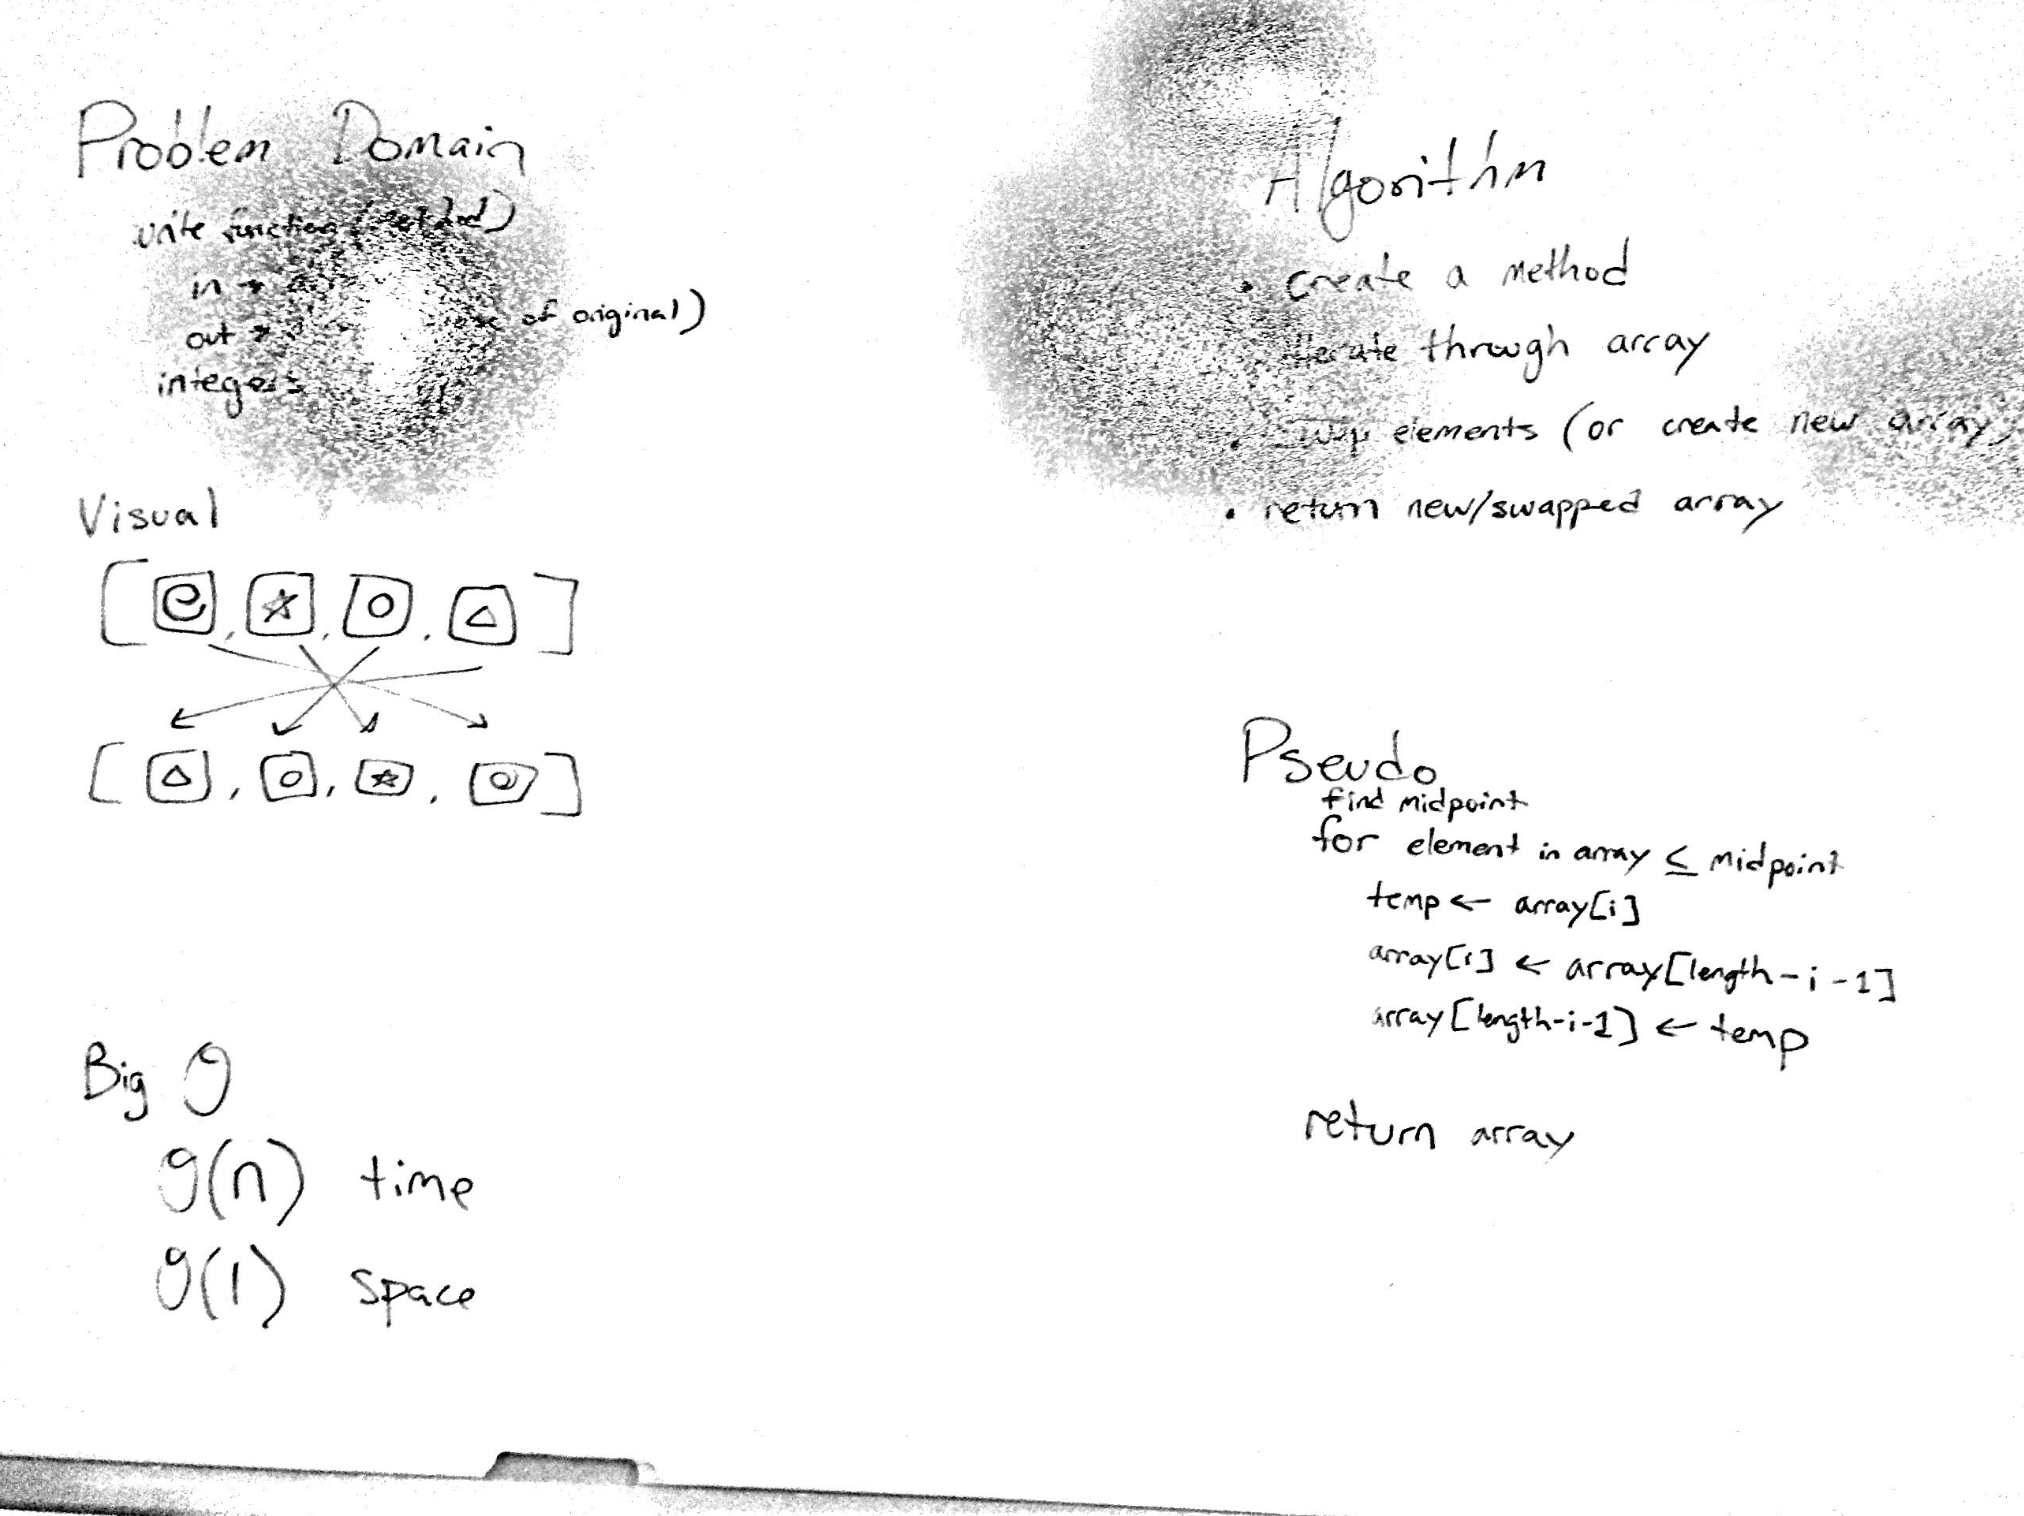 Problem Domain
write function (method)
in →
out → of original)
integers
Visual
[ , , , ]
[ , , , ]
Big O
O(n) time
O(1) space
Algorithm
• create a method
iterate through array
• swap elements (or create new array)
• return new/swapped array
Pseudo
find midpoint
for element in array ≤ midpoint
temp ← array[i]
array[i] ← array[length-i-1]
array[length-i-1] ← temp
return array